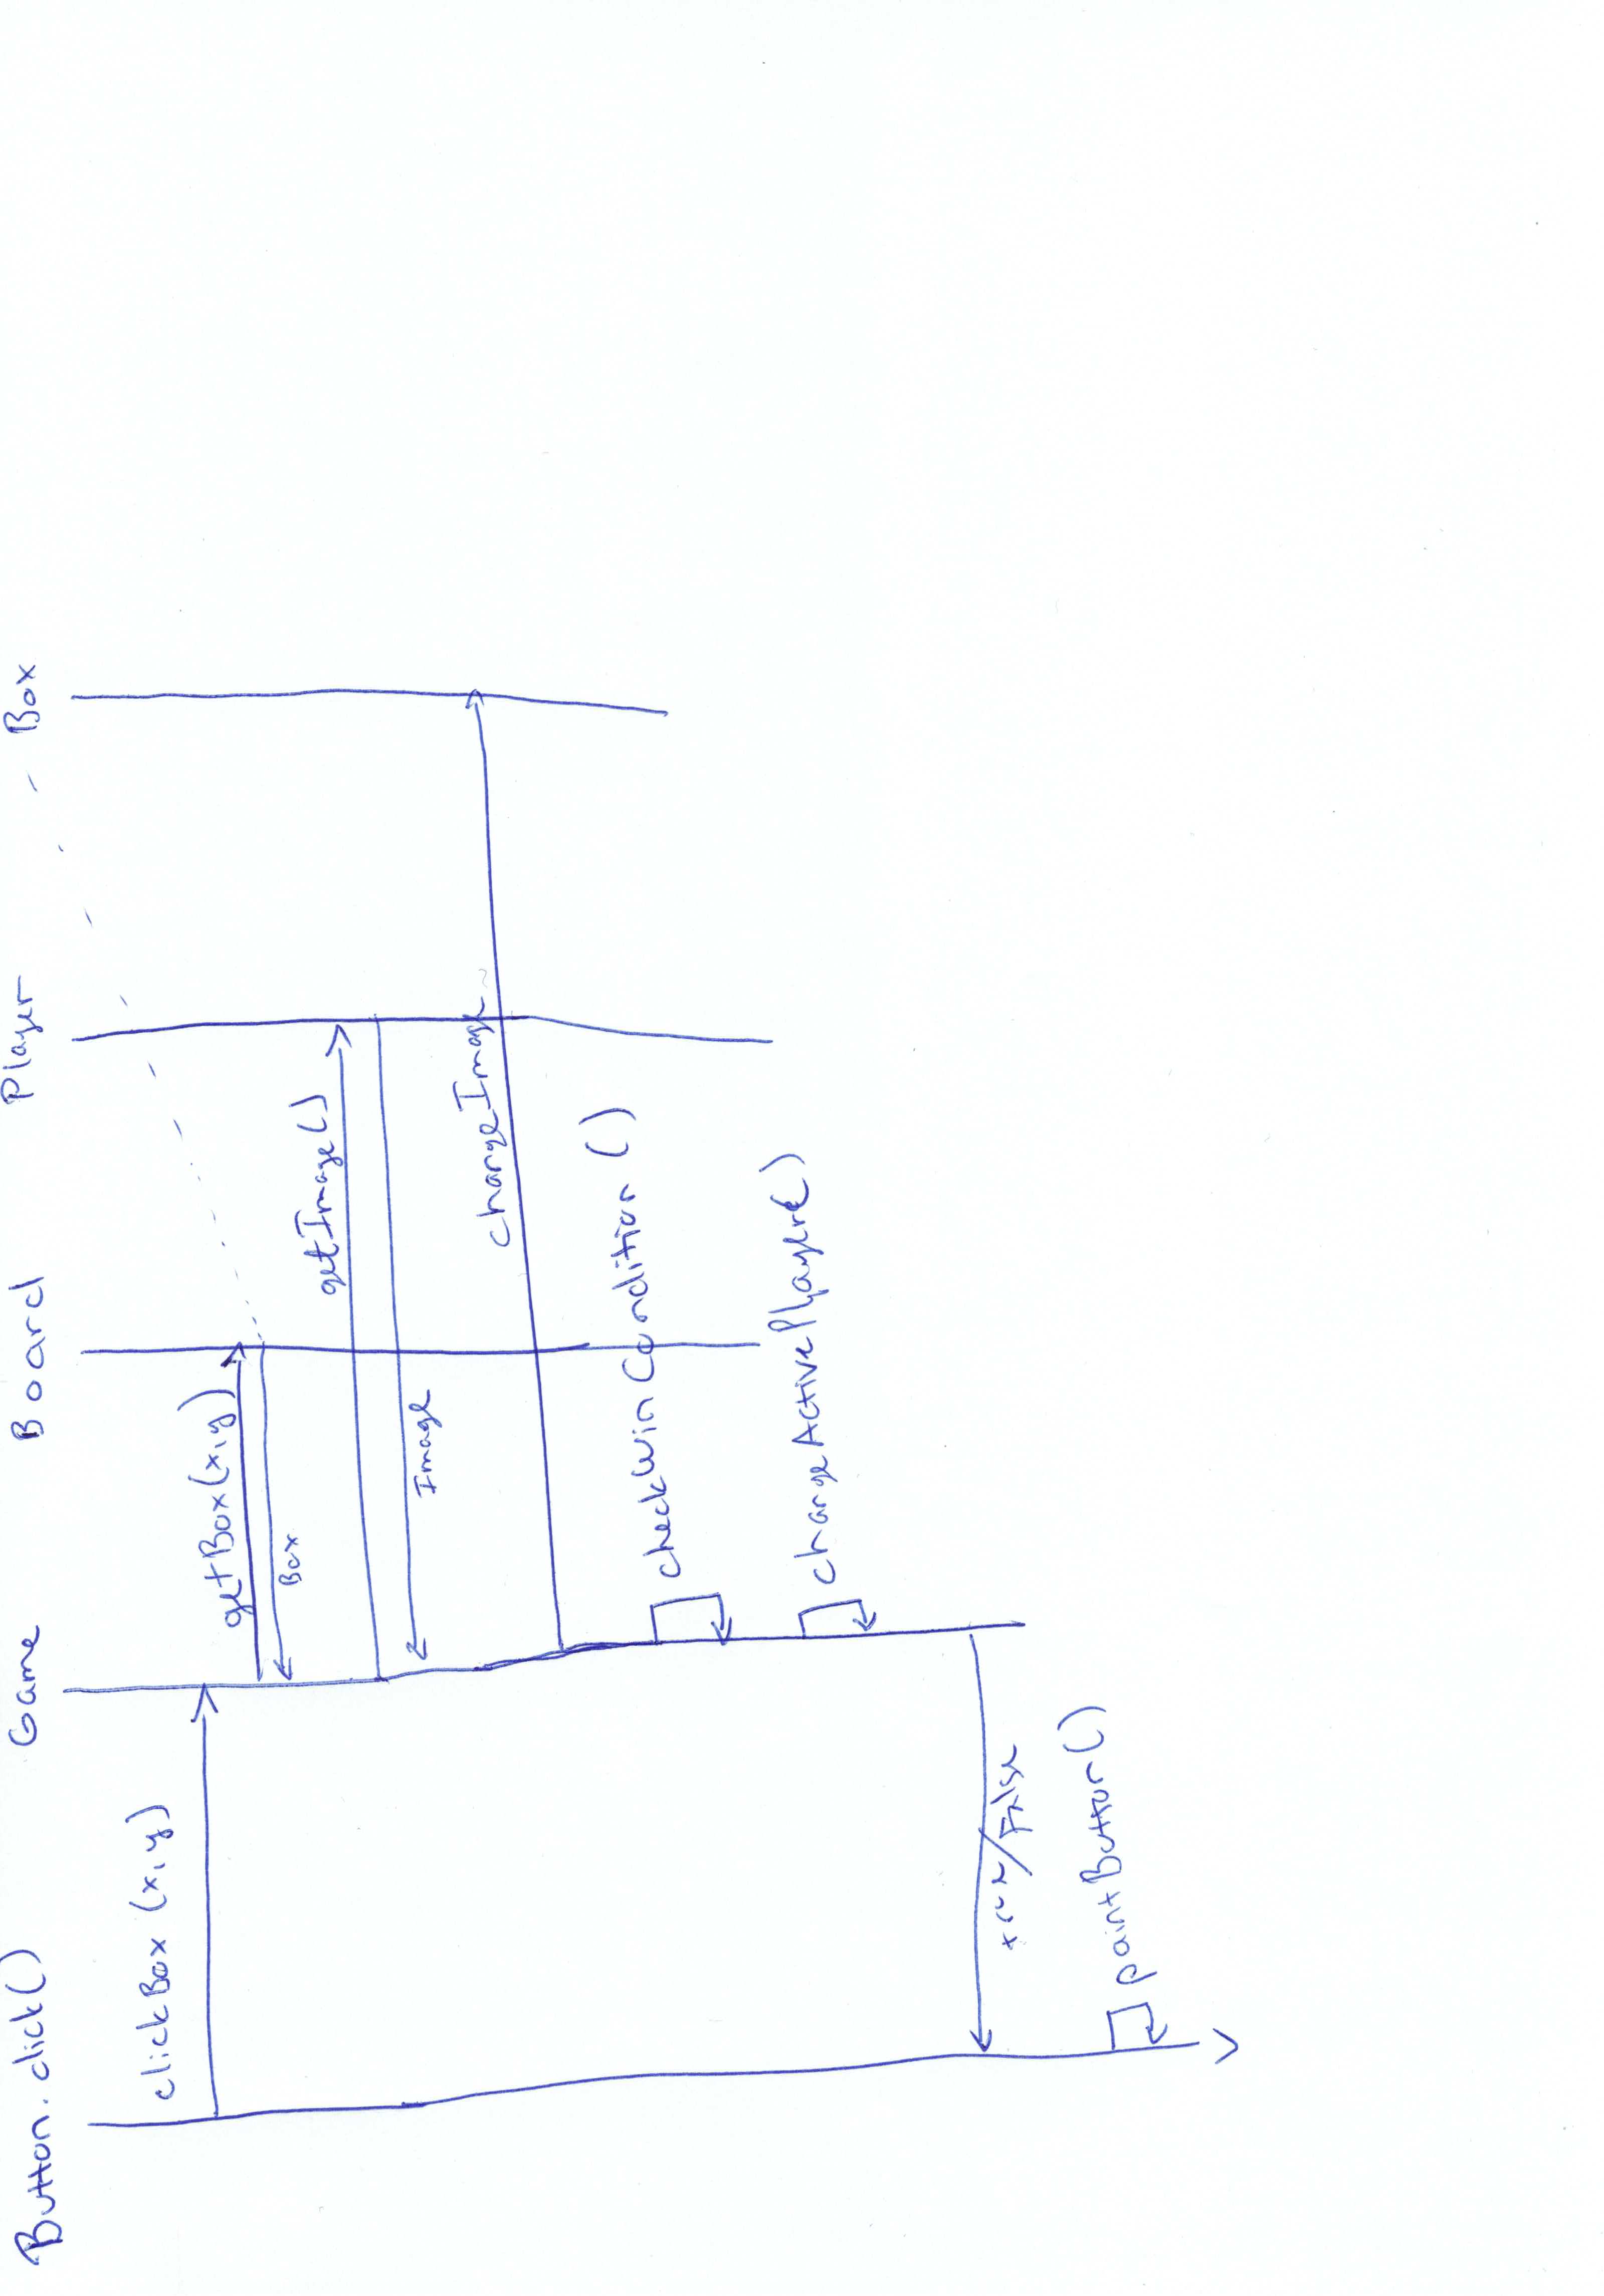 Button.click() Game Board Player Box
clickBox (x,y)
getBox(x,y)
Box
getImage()
Image
changeImage
checkWinCondition ()
changeActivePlayer()
true/False
paintButton()